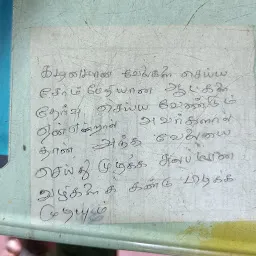 கடினமான வேலைகள் செய்ய
சோம்பேறியான ஆட்களை
தேர்வு செய்ய வேண்டும்
ஏன்என்றால் அவர்களால்
தான் அந்த வேலையை
செய்து முடிக்க சுலபமான
வழிகளைக் கண்டு பிடிக்க
முடியும்